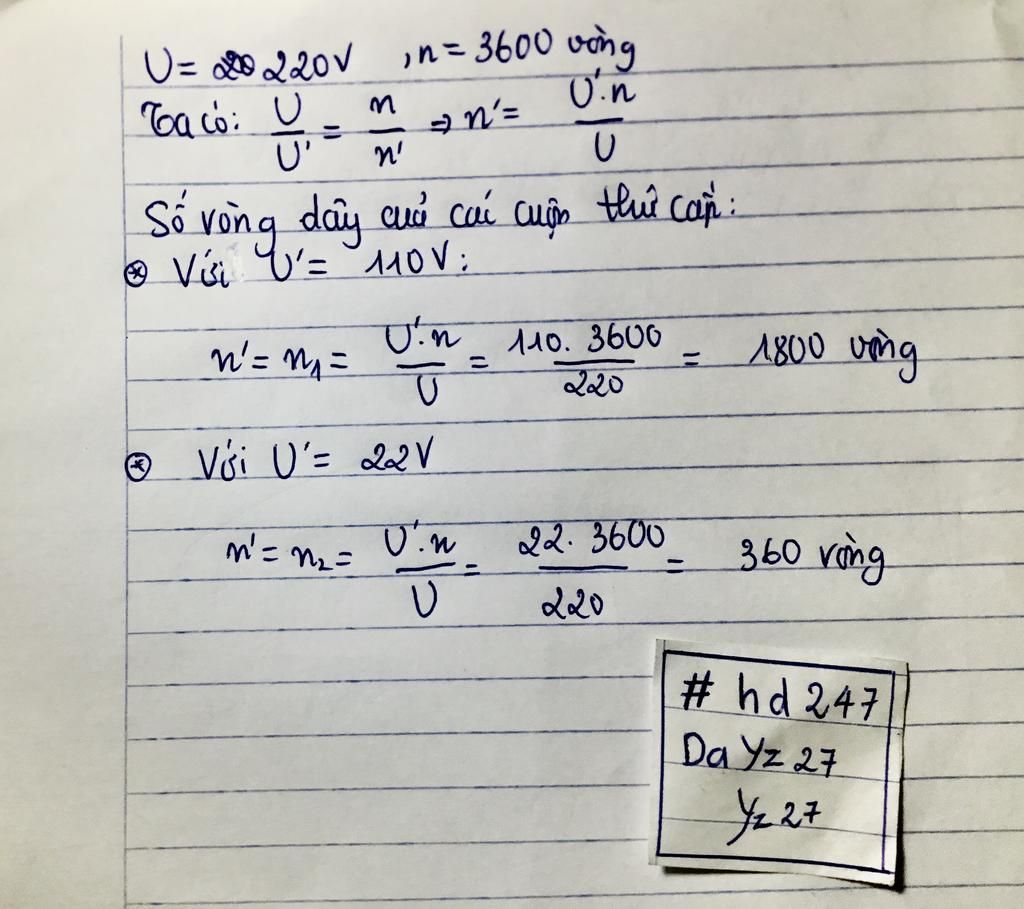 U = 220V , n = 3600 vòng
Ta có: U/U' = n/n' ⇒ n' = U'.n/U
Số vòng dây cuả các cuộn thứ cấp:
⊛ Với U' = 110V:
n' = n₁ = U'.n/U = 110. 3600/220 = 1800 vòng
⊛ Với U' = 22V
n' = n₂ = U'.n/U = 22. 3600/220 = 360 vòng
# hd 247
Da Yz 27
Yz 27